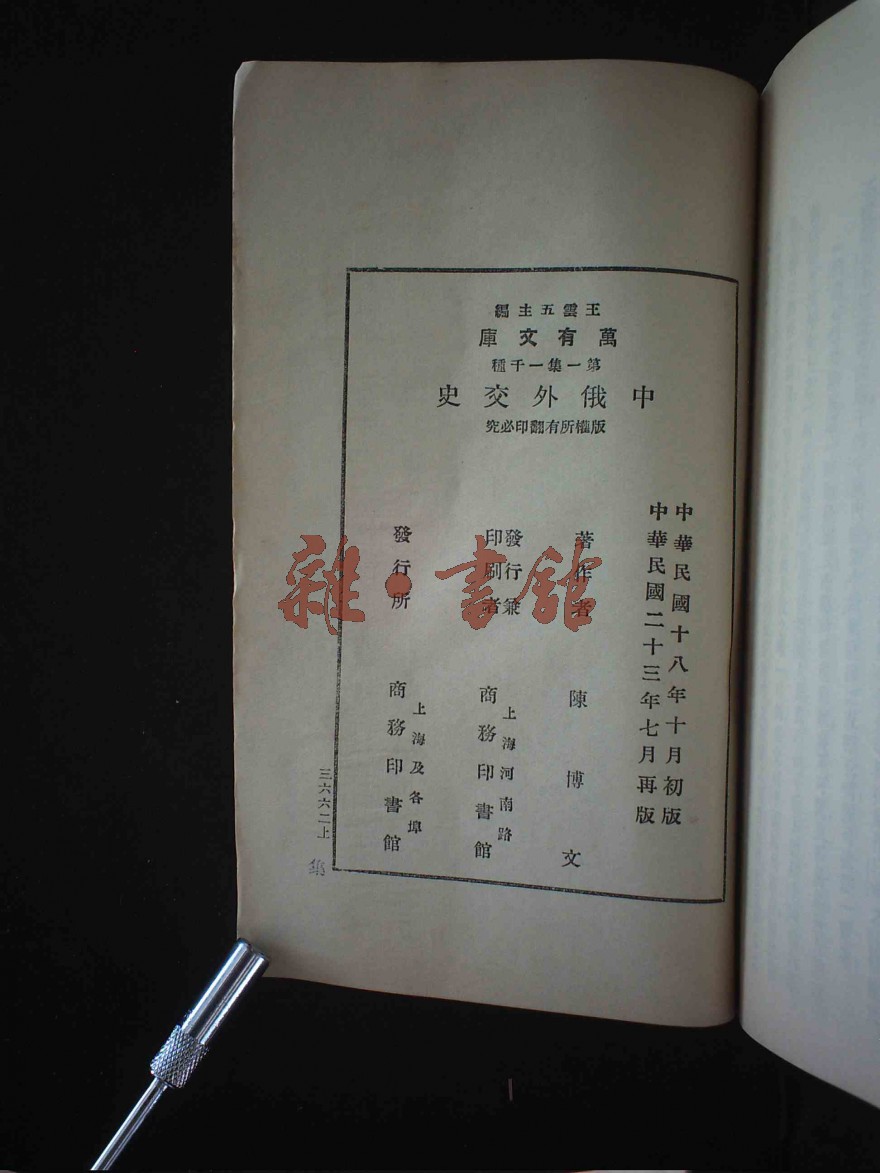 王雲五主編
萬有文庫
第一集一千種
中俄外交史
版權所有翻印必究
中華民國十八年十月初版
中華民國二十三年七月再版
著作者 陳博文
發行兼印刷者 上海河南路 商務印書館
發行所 上海及各埠 商務印書館
三六六二上
集
雜·書館